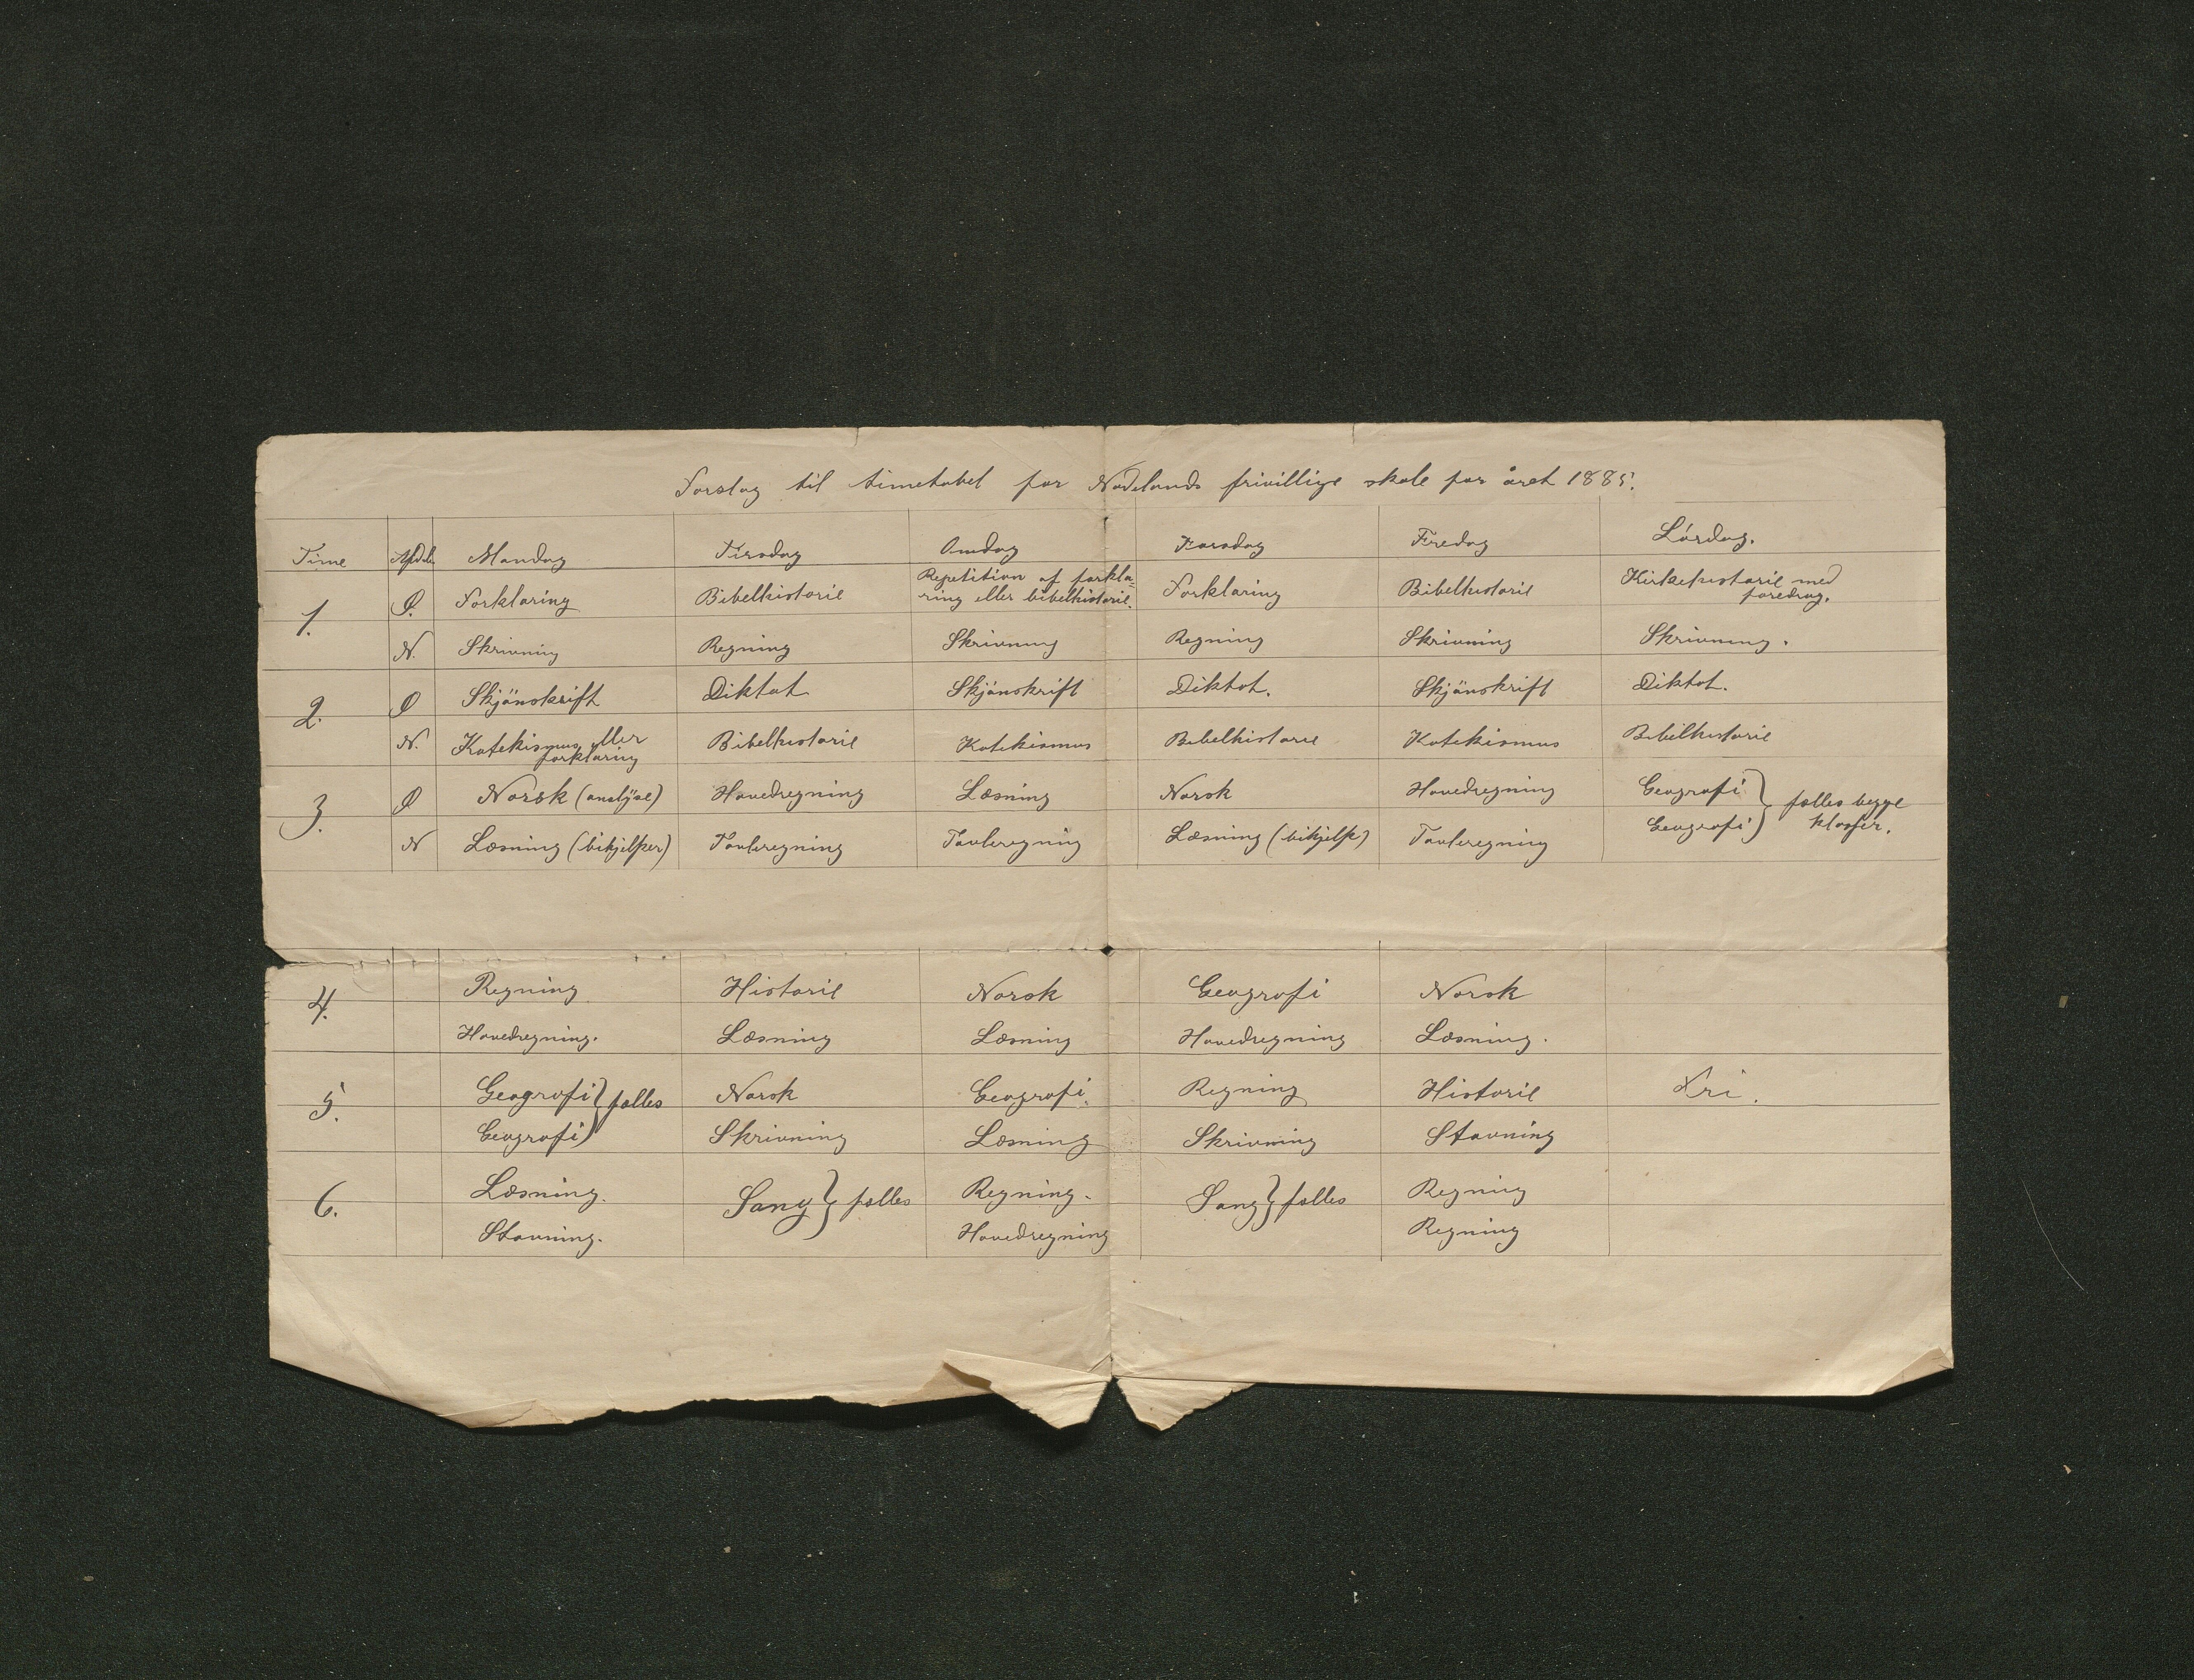 Forslag til timetabel for Nodelands frivillige skole for året 1885.
Time Afdel. Mandag Tirsdag Onsdag Torsdag Fredag Lördag.
1. Ø. Forklaring Bibelhistorie Repetition af forkla- Forklaring Bibelhistorie Kirkehistorie med
ring eller bibelhistorie. foredrag.
N. Skrivning Regning Skrivning Regning Skrivning Skrivning.
2. Ø Skjönskrift Diktat Skjönskrift Diktat. Skjönskrift Diktat.
N. Katekismus eller Bibelhistorie Katekismus Bibelhistorie Katekismus Bibelhistorie
forklaring
3. Ø Norsk (analyse) Hovedregning Læsning Norsk Hovedregning Geografi } fælles begge
N Læsning (bihjelper) Tavleregning Tavleregning Læsning (bihjelp) Tavleregning Geografi } klasser.
4. Regning Historie Norsk Geografi Norsk
Hovedregning. Læsning Læsning Hovedregning Læsning.
5. Geografi } fælles Norsk Geografi. Regning Historie Fri.
Geografi } Skrivning Læsning Skrivning Stavning
6. Læsning. Sang } fælles Regning. Sang } fælles Regning
Stavning. Hovedregning Regning